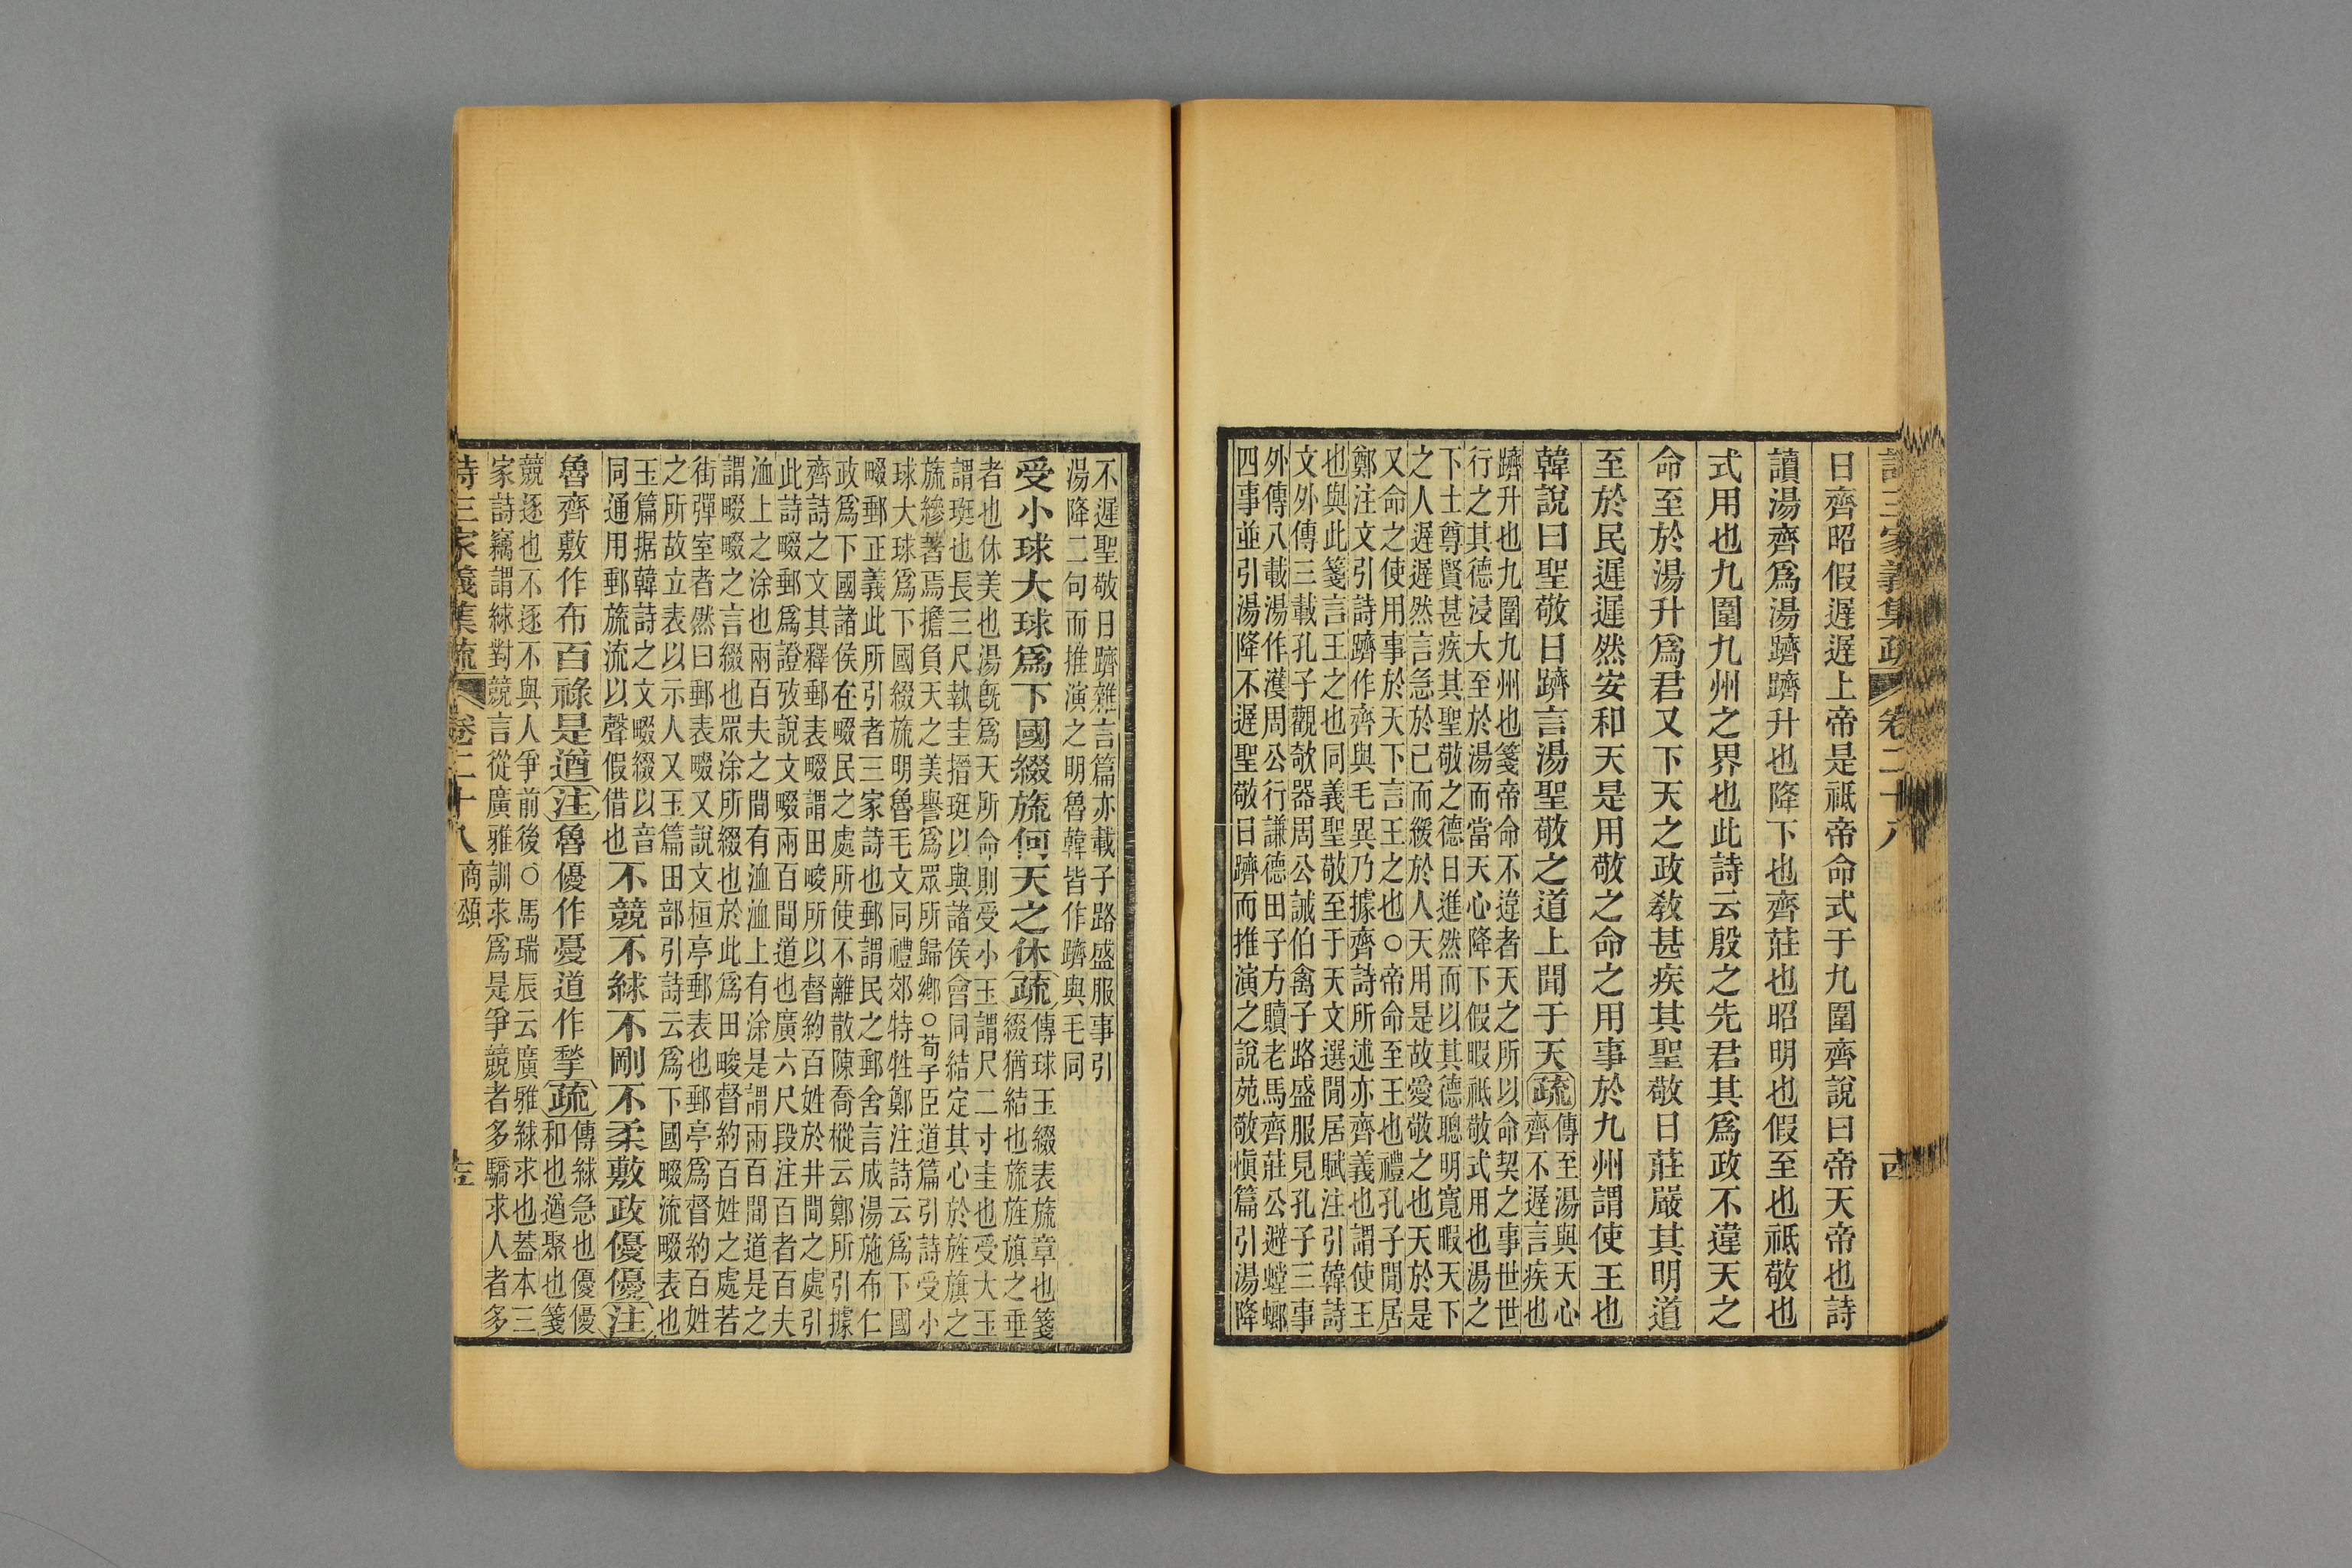 詩三家義集疏 卷二十八
日齊昭假遲遲上帝是祗帝命式于九圍齊說曰帝天帝也詩
讀湯齊爲湯躋躋升也降下也齊莊也昭明也假至也祗敬也
式用也九圍九州之界也此詩云殷之先君其爲政不違天之
命至於湯升爲君又下天之政敎甚疾其聖敬日莊嚴其明道
至於民遲遲然安和天是用敬之命之用事於九州謂使王也
韓說曰聖敬日躋言湯聖敬之道上聞于天疏傳至湯與天心
齊不遲言疾也
躋升也九圍九州也箋帝命不違者天之所以命契之事世世
行之其德浸大至於湯而當天心降下假暇祗敬式用也湯之
下士尊賢甚疾其聖敬之德日進然而以其德聰明寬暇天下
之人遲遲然言急於己而緩於人天用是故愛敬之也天於是
又命之使用事於天下言王之也○帝命至王也禮孔子閒居
鄭注文引詩躋作齊與毛異乃據齊詩所述亦齊義也謂使王
也與此箋言王之也同義聖敬至于天文選閒居賦注引韓詩
文外傳三載孔子觀欹器周公誡伯禽子路盛服見孔子三事
外傳八載湯作濩周公行謙德田子方贖老馬齊莊公避螳螂
四事並引湯降不遲聖敬日躋而推演之說苑敬愼篇引湯降
不遲聖敬日躋雜言篇亦載子路盛服事引
湯降二句而推演之明魯韓皆作躋與毛同
受小球大球爲下國綴旒何天之休疏傳球玉綴表旒章也箋
綴猶結也旒旌旗之垂
者也休美也湯旣爲天所命則受小玉謂尺二寸圭也受大玉
謂珽也長三尺執圭搢珽以與諸侯會同結定其心於旌旗之
旒縿著焉擔負天之美譽爲眾所歸鄉○荀子臣道篇引詩受小
球大球爲下國綴旒明魯毛文同禮郊特牲鄭注詩云爲下國
畷郵正義此所引者三家詩也郵謂民之郵舍言成湯施布仁
政爲下國諸侯在畷民之處所使不離散陳喬樅云鄭所引據
齊詩之文其釋郵表畷謂田畯所以督約百姓於井間之處引
此詩畷郵爲證攷說文畷兩百間道也廣六尺段注百者百夫
洫上之涂也兩百夫之間有洫洫上有涂是謂兩百間道是之
謂畷畷之言綴也眾涂所綴也於此爲田畯督約百姓之處若
街彈室者然曰郵表畷又說文桓亭郵表也郵亭爲督約百姓
之所故立表以示人又玉篇田部引詩云爲下國畷流畷表也
玉篇据韓詩之文畷綴以音
同通用郵旒流以聲假借也不競不絿不剛不柔敷政優優注
魯齊敷作布百祿是遒注魯優作憂道作揫疏傳絿急也優優
和也遒聚也箋
競逐也不逐不與人爭前後○馬瑞辰云廣雅絿求也蓋本三
家詩竊謂絿對競言從廣雅訓求爲是爭競者多驕求人者多
詩三家義集疏 卷二十八 商頌